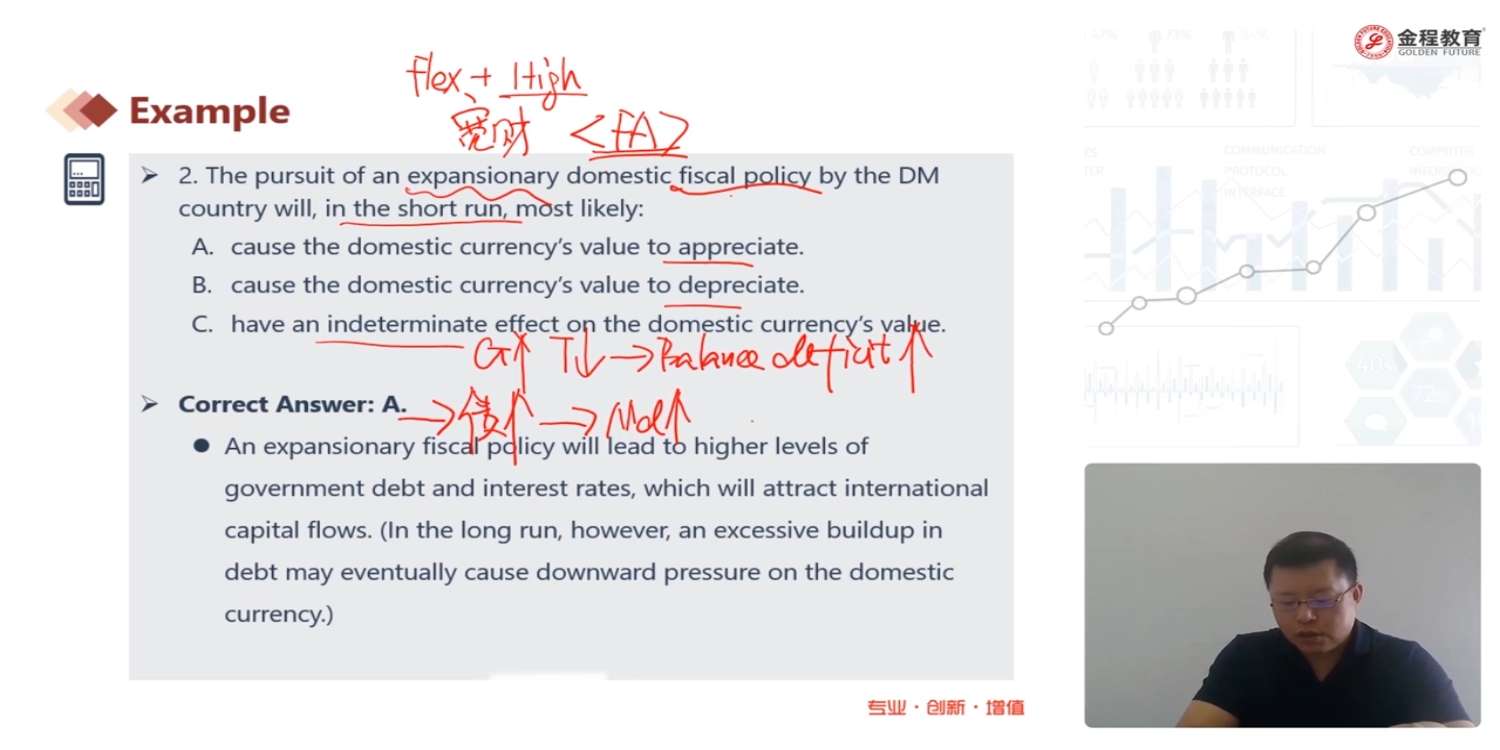 金程教育
GOLDEN FUTURE
flex + High
宽财 <FA>
Example
2. The pursuit of an expansionary domestic fiscal policy by the DM
country will, in the short run, most likely:
A. cause the domestic currency's value to appreciate.
B. cause the domestic currency's value to depreciate.
C. have an indeterminate effect on the domestic currency's value.
G↑ T↓ → Balance deficit ↑
Correct Answer: A.
→ 债↑ → ↑
An expansionary fiscal policy will lead to higher levels of
government debt and interest rates, which will attract international
capital flows. (In the long run, however, an excessive buildup in
debt may eventually cause downward pressure on the domestic
currency.)
专业·创新·增值
COMMUNICATION
PROTOCOL
INTERFACE